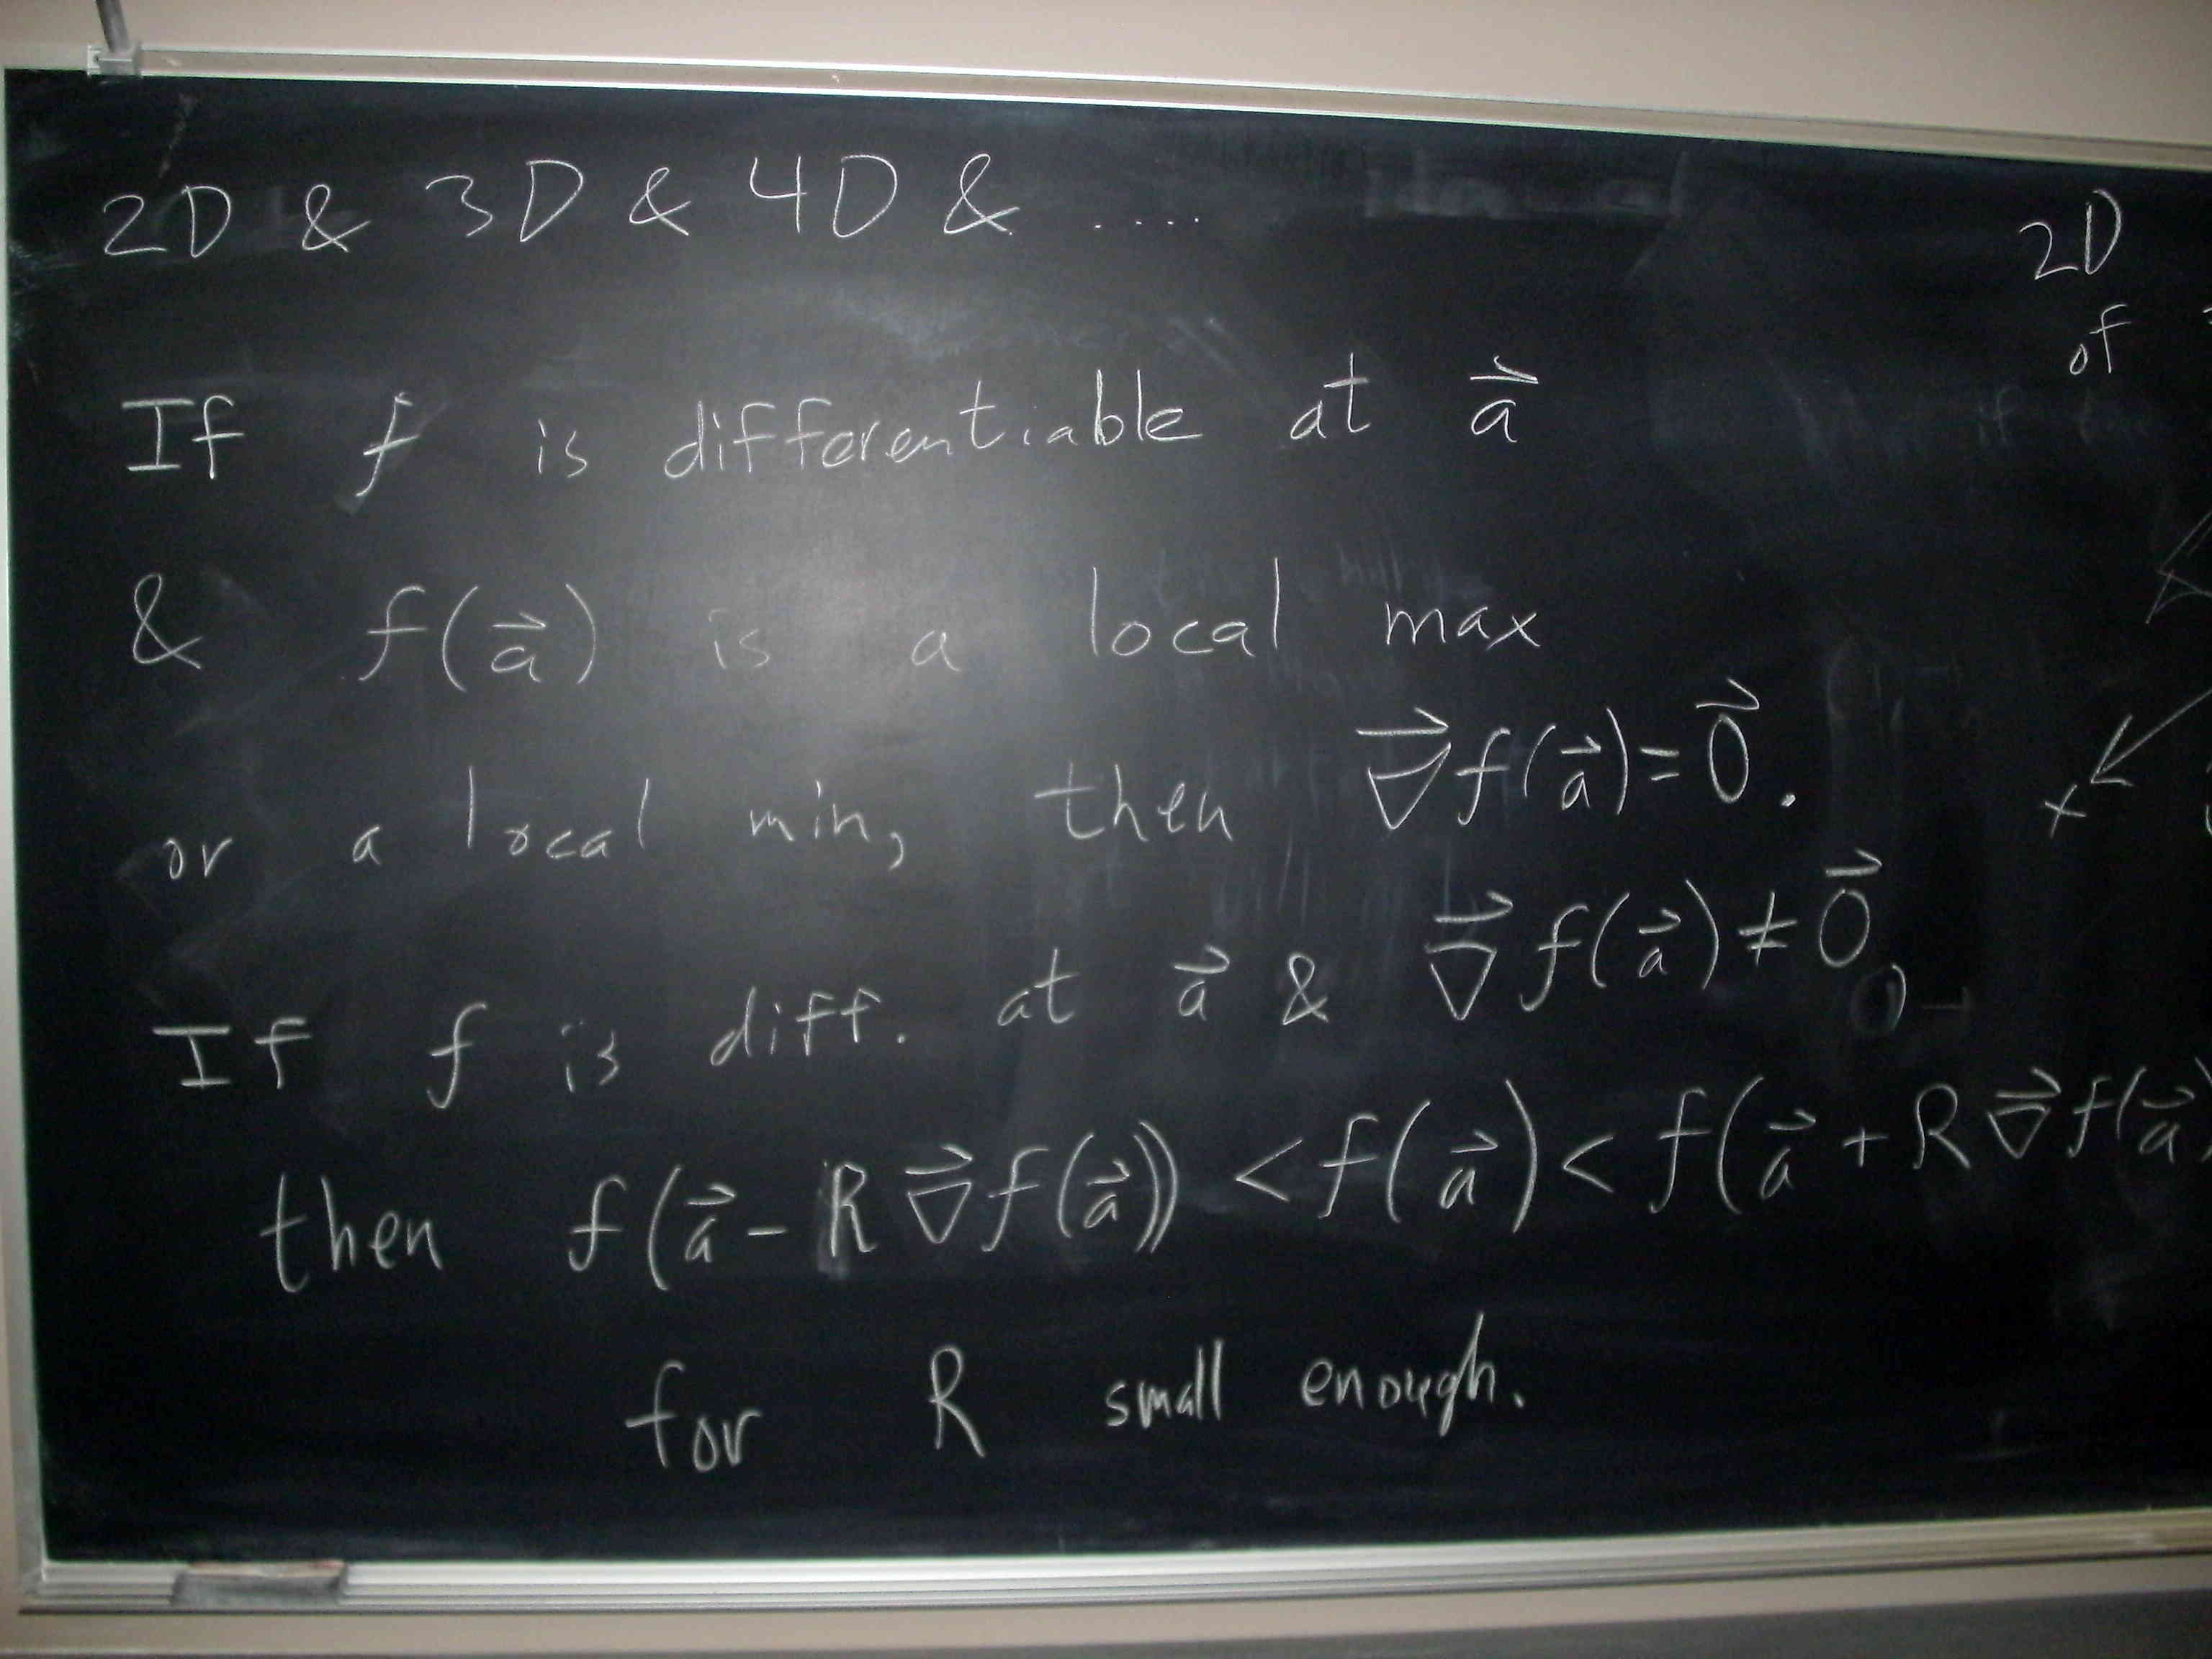 2D & 3D & 4D & .....
If f is differentiable at a⃗
& f(a⃗) is a local max
or a local min, then ∇⃗f(a⃗)=0⃗.
If f is diff. at a⃗ & ∇⃗f(a⃗)≠0⃗,
then f(a⃗ - R∇⃗f(a⃗)) < f(a⃗) < f(a⃗ + R∇⃗f(a⃗)
for R small enough.
2D
of
x